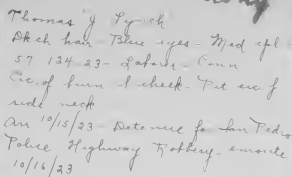 Thomas J Lynch
Dk ch hair - Blue eyes - Med cpl
57 124 23 - Labor - Conn
Cic of burn l cheek - Pit sic. f
side neck
Arr 10/15/23 - Detenue for San Pedro
Police Highway Robbery - enroute
10/16/23